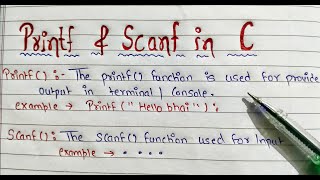 Printf & Scanf in C
Printf() :- The printf() function is used for provide
output in terminal | console.
example → Printf("Hello bhai");
Scanf() : The Scanf() function used for Input
example →